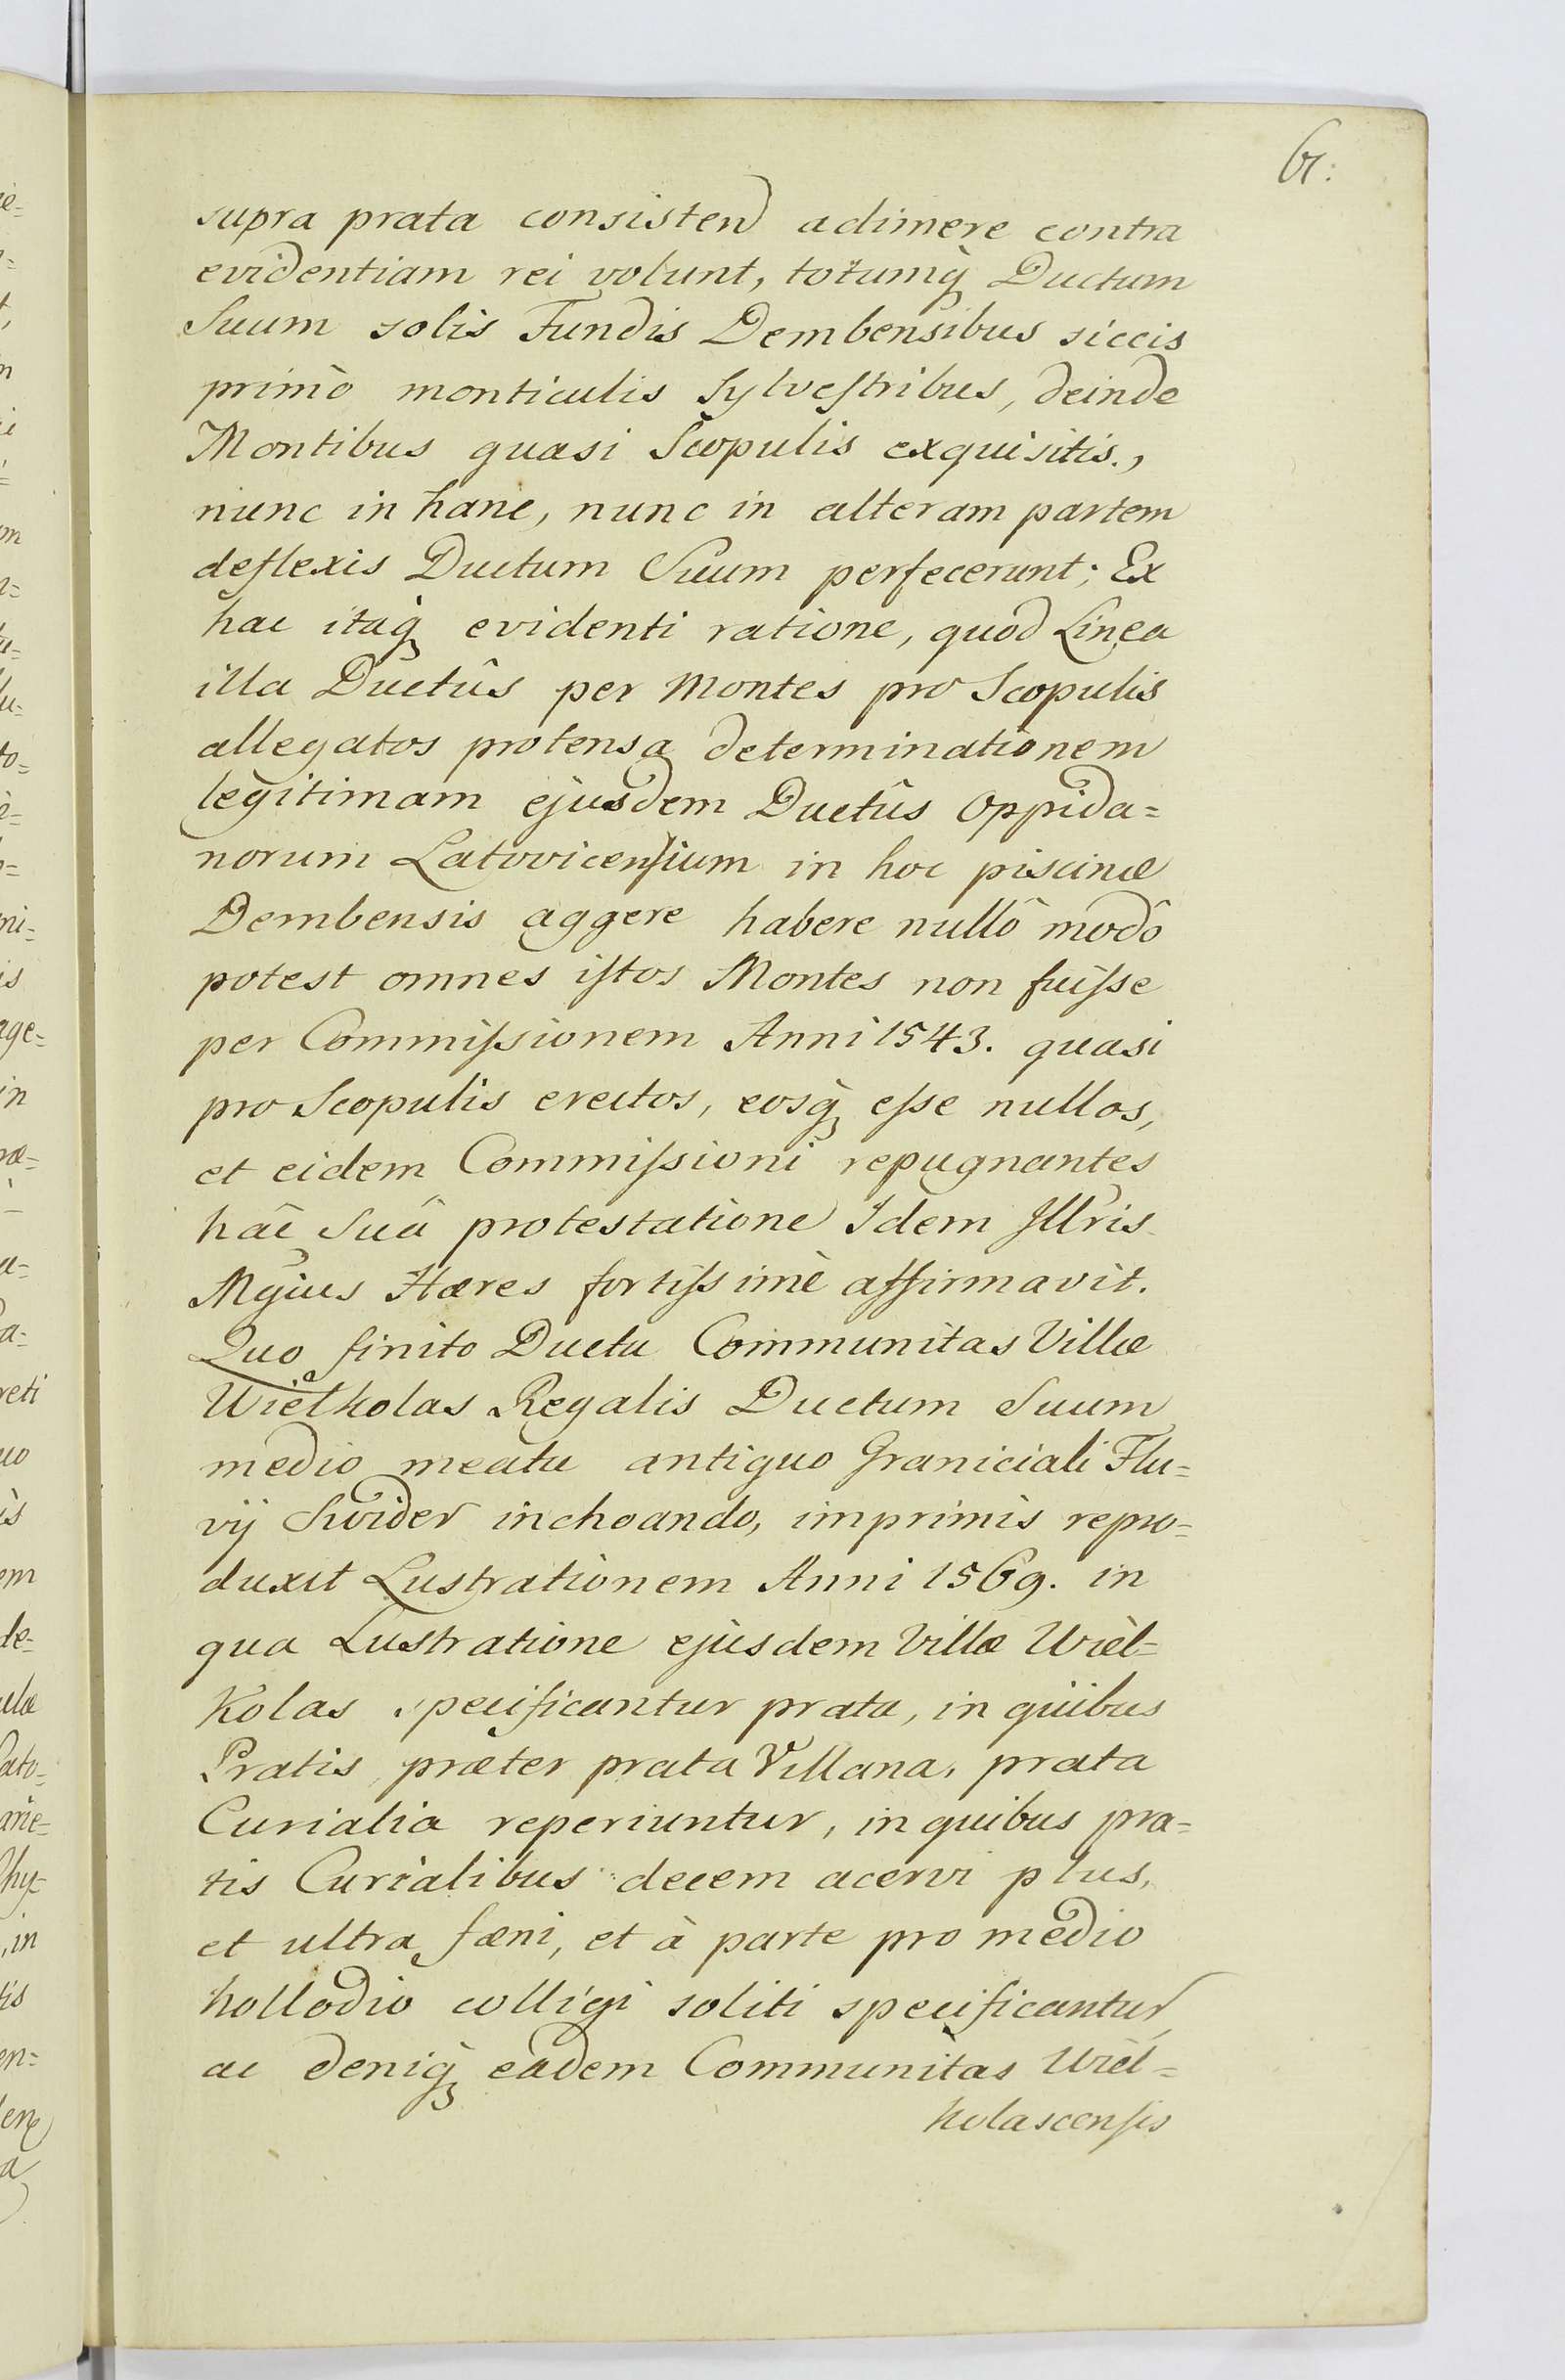 61:
supra prata consistend adimere contra
evidentiam rei volunt, totumq̀ Ductum
Suum solis Fundis Dembensibus siccis
primò monticulis Sylveſtribus, deinde
Montibus quasi Scopulis exquisitis.,
nunc in hanc, nunc in alteram partem
deflexis Ductum Suum perfecerunt; Ex
hac itaq̀ evidenti ratione, quod Linea
illa Ductûs per Montes pro Scopulis
allegatos protensa determinationem
legitimam ejusdem Ductûs Oppida=
norum Latovicenſium in hoc piscinæ
Dembensis aggere habere nullô modô
potest omnes iſtos Montes non fuiſse
per Commiſsionem Anni 1543. quasi
pro Scopulis erectos, eosq̀ eſse nullos,
et eidem Commiſsioni repugnantes
hâc Suâ protestatione Idem Illris
Mgius Hæres fortiſsimè affirmavit.
Quo finito Ductu Communitas Villæ
Wielkolas Regalis Ductum Suum
medio meatu antiquo Graniciali Flu=
vij Swider inchoando, imprimis repro=
duxit Lustrationem Anni 1569. in
qua Lustratione ejusdem Villæ Wiel=
Kolas specificantur prata, in quibus
Pratis præter prata Villana, prata
Curialia reperiuntur, in quibus pra=
tis Curialibus decem acervi plus,
et ultra fæni, et à parte pro medio
hollodio colligi soliti specificantur,
ac deniq̀ eadem Communitas Wiel=
kolascenſis